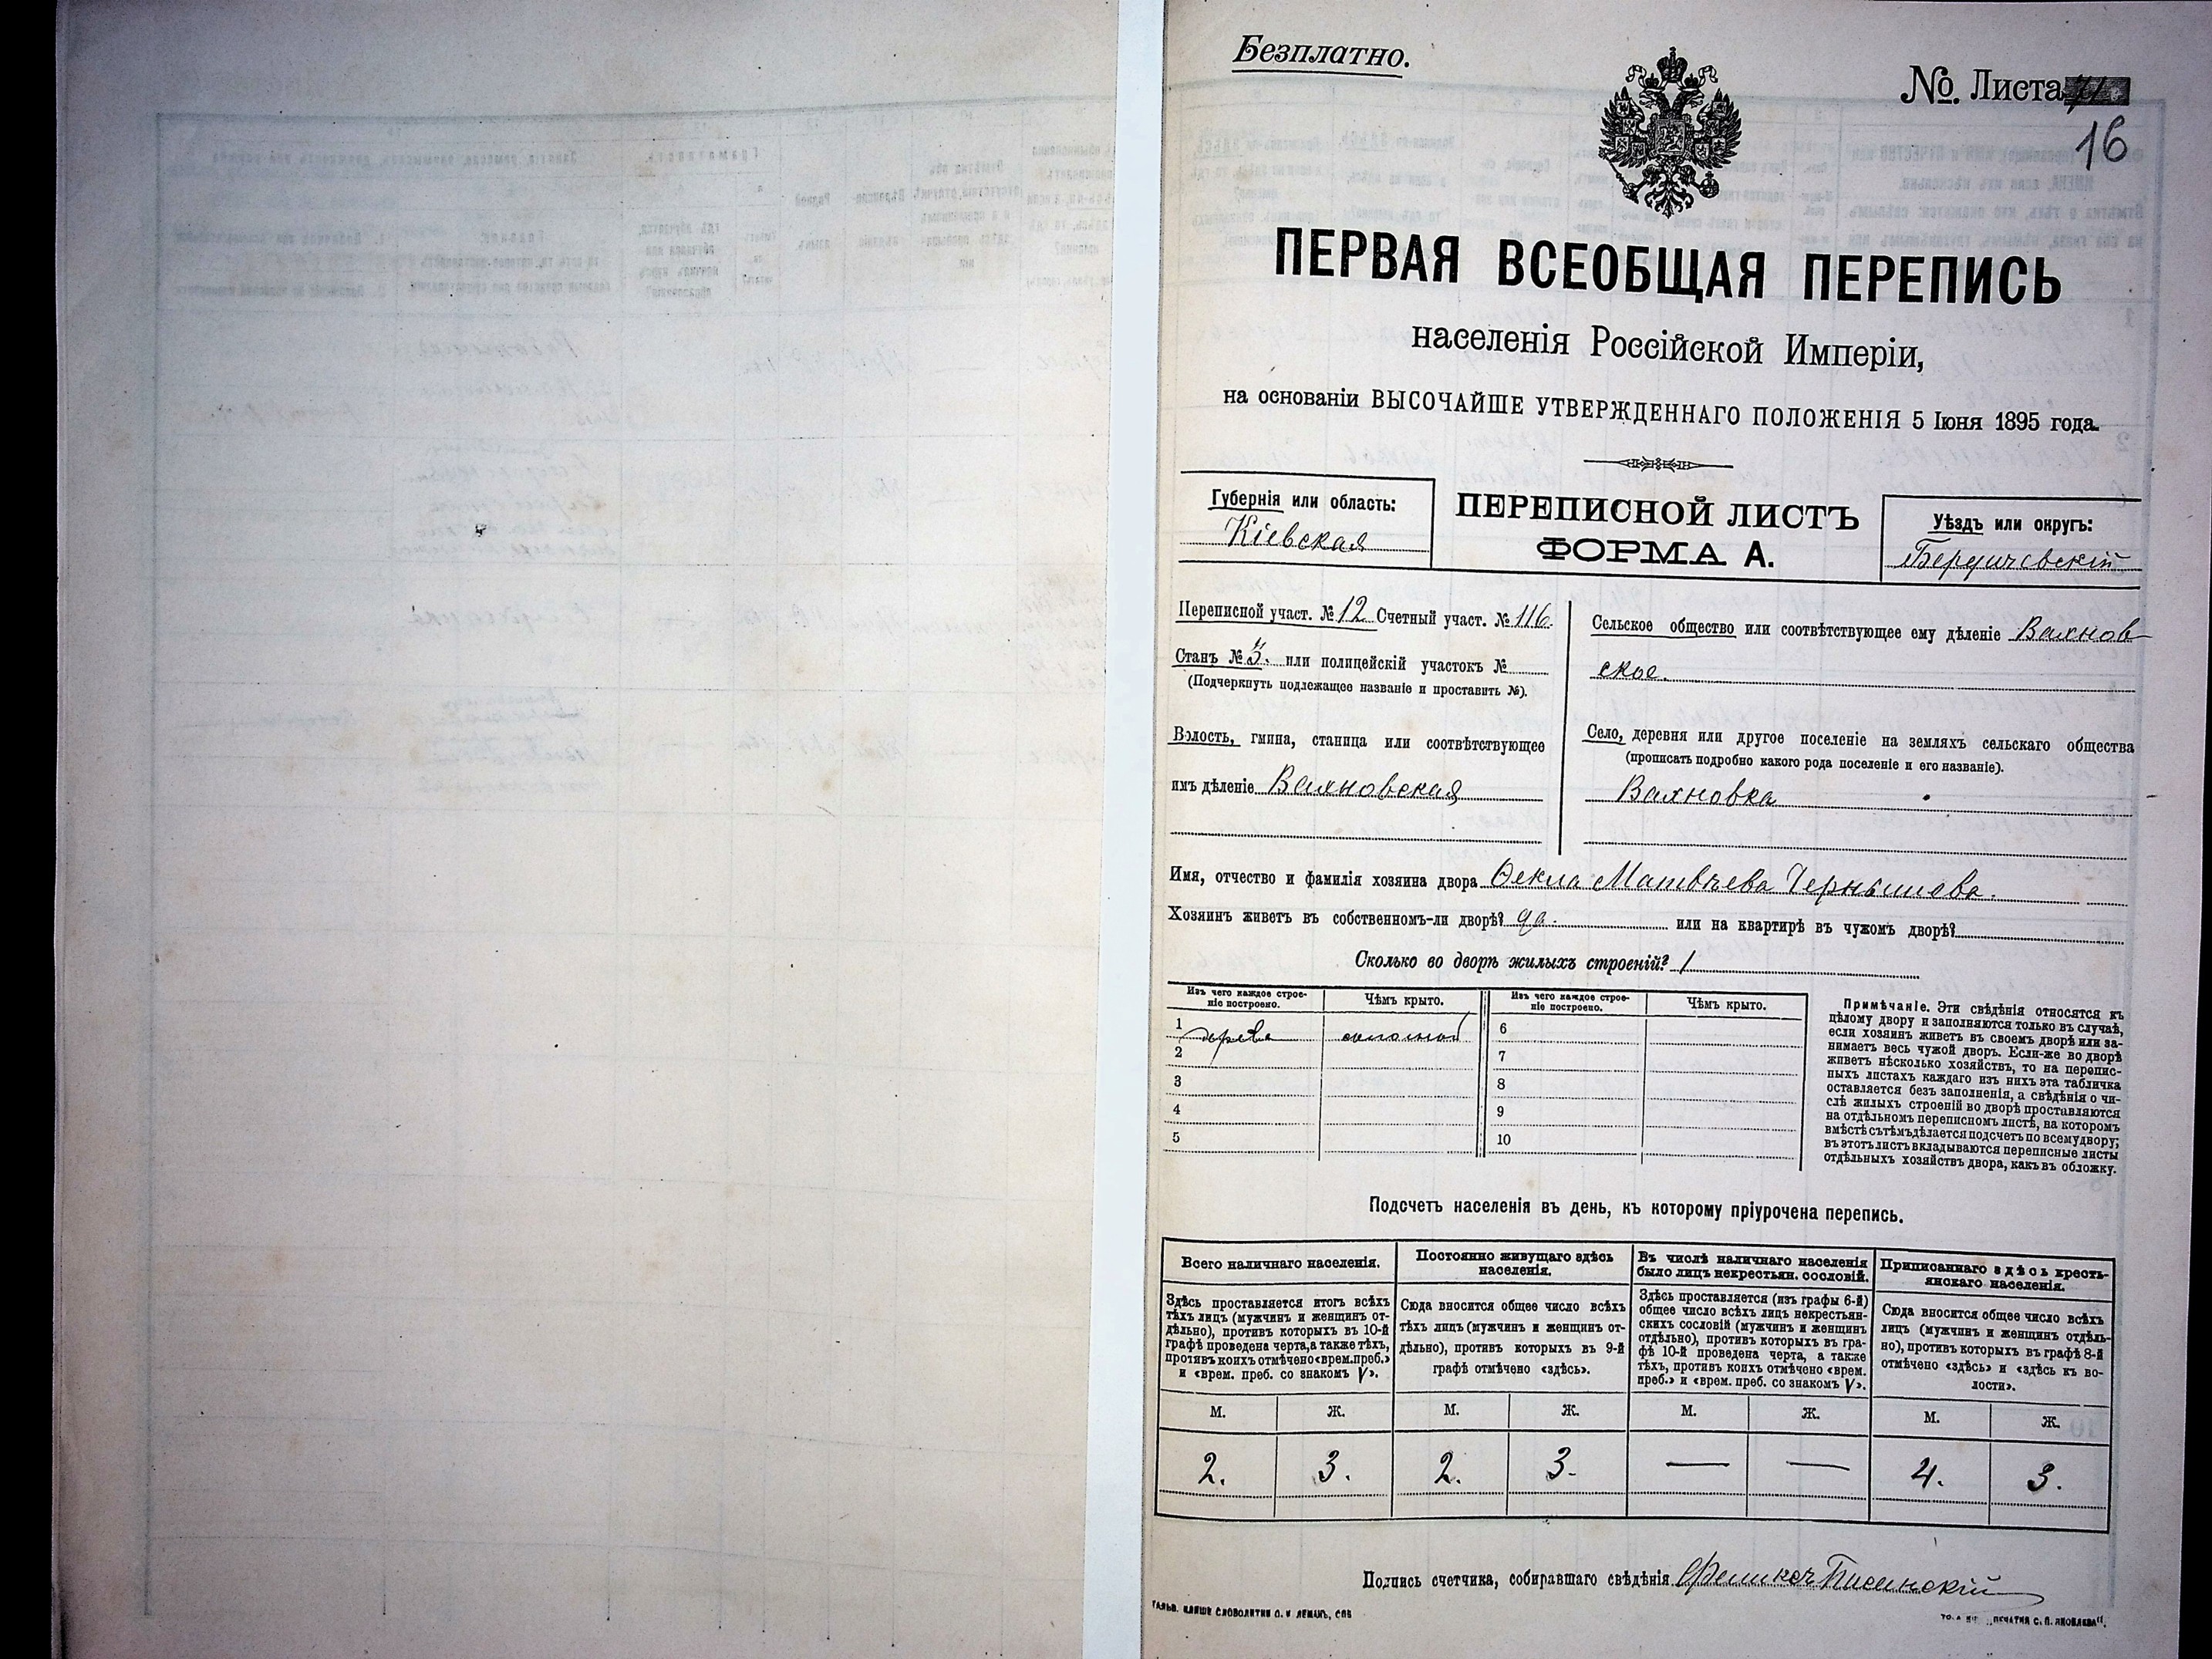 Безплатно.
№ Листа
16
ПЕРВАЯ ВСЕОБЩАЯ ПЕРЕПИСЬ
населенія Россійской Имперіи,
на основаніи ВЫСОЧАЙШЕ УТВЕРЖДЕННАГО ПОЛОЖЕНІЯ 5 Іюня 1895 года.
Губернія или область:
Кіевская
ПЕРЕПИСНОЙ ЛИСТЪ
ФОРМА А.
Уѣздъ или округъ:
Бердичевскій
Переписной участ. № 12 Счетный участ. № 116.
Станъ № 3. или полицейскій участокъ №
(Подчеркнуть подлежащее названіе и проставить №).
Волость, гмина, станица или соотвѣтствующее
имъ дѣленіе Вахновская
Сельское общество или соотвѣтствующее ему дѣленіе Вахнов
ское.
Село, деревня или другое поселеніе на земляхъ сельскаго общества
(прописать подробно какого рода поселеніе и его названіе).
Вахновка
Имя, отчество и фамилія хозяина двора Ѳекла Матвѣева Чернышова.
Хозяинъ живетъ въ собственномъ-ли дворѣ? да. или на квартирѣ въ чужомъ дворѣ?
Сколько во дворѣ жилыхъ строеній? 1
Изъ чего каждое строе-
ніе построено.
Чѣмъ крыто.
Изъ чего каждое строе-
ніе построено.
Чѣмъ крыто.
1 дерева соломой 6
2 7
3 8
4 9
5 10
Примѣчаніе. Эти свѣдѣнія относятся къ
цѣлому двору и заполняются только въ случаѣ,
если хозяинъ живетъ въ своемъ дворѣ или за-
нимаетъ весь чужой дворъ. Если-же во дворѣ
живетъ нѣсколько хозяйствъ, то на перепис-
ныхъ листахъ каждаго изъ нихъ эта табличка
оставляется безъ заполненія, а свѣдѣнія о чи-
слѣ жилыхъ строеній во дворѣ проставляются
на отдѣльномъ переписномъ листѣ, на которомъ
вмѣстѣ съ тѣмъ дѣлается подсчетъ по всему двору;
въ этотъ листъ вкладываются переписные листы
отдѣльныхъ хозяйствъ двора, какъ въ обложку.
Подсчетъ населенія въ день, къ которому пріурочена перепись.
Всего наличнаго населенія.
Здѣсь проставляется итогъ всѣхъ
тѣхъ лицъ (мужчинъ и женщинъ от-
дѣльно), противъ которыхъ въ 10-й
графѣ проведена черта, а также тѣхъ,
противъ коихъ отмѣчено «врем. преб.»
и «врем. преб. со знакомъ V».
Постоянно живущаго здѣсь
населенія.
Сюда вносится общее число всѣхъ
тѣхъ лицъ (мужчинъ и женщинъ от-
дѣльно), противъ которыхъ въ 9-й
графѣ отмѣчено «здѣсь».
Въ числѣ наличнаго населенія
было лицъ некрестьян. сословій.
Здѣсь проставляется (изъ графы 6-й)
общее число всѣхъ лицъ некрестьян-
скихъ сословій (мужчинъ и женщинъ
отдѣльно), противъ которыхъ въ гра-
фѣ 10-й проведена черта, а также
тѣхъ, противъ коихъ отмѣчено «врем.
преб.» и «врем. преб. со знакомъ V».
Приписаннаго здѣсь кресть-
янскаго населенія.
Сюда вносится общее число всѣхъ
лицъ (мужчинъ и женщинъ отдѣль-
но), противъ которыхъ въ графѣ 8-й
отмѣчено «здѣсь» и «здѣсь къ во-
лости».
М. Ж. М. Ж. М. Ж. М. Ж.
2. 3. 2. 3. — — 4. 3.
Подпись счетчика, собиравшаго свѣдѣнія Феликсъ
ГАЛЬВ. КЛИШЕ СЛОВОЛИТНИ О. И ЛЕМАНЪ, СПБ
ПЕЧАТНЯ С. П. ЯКОВЛЕВА".